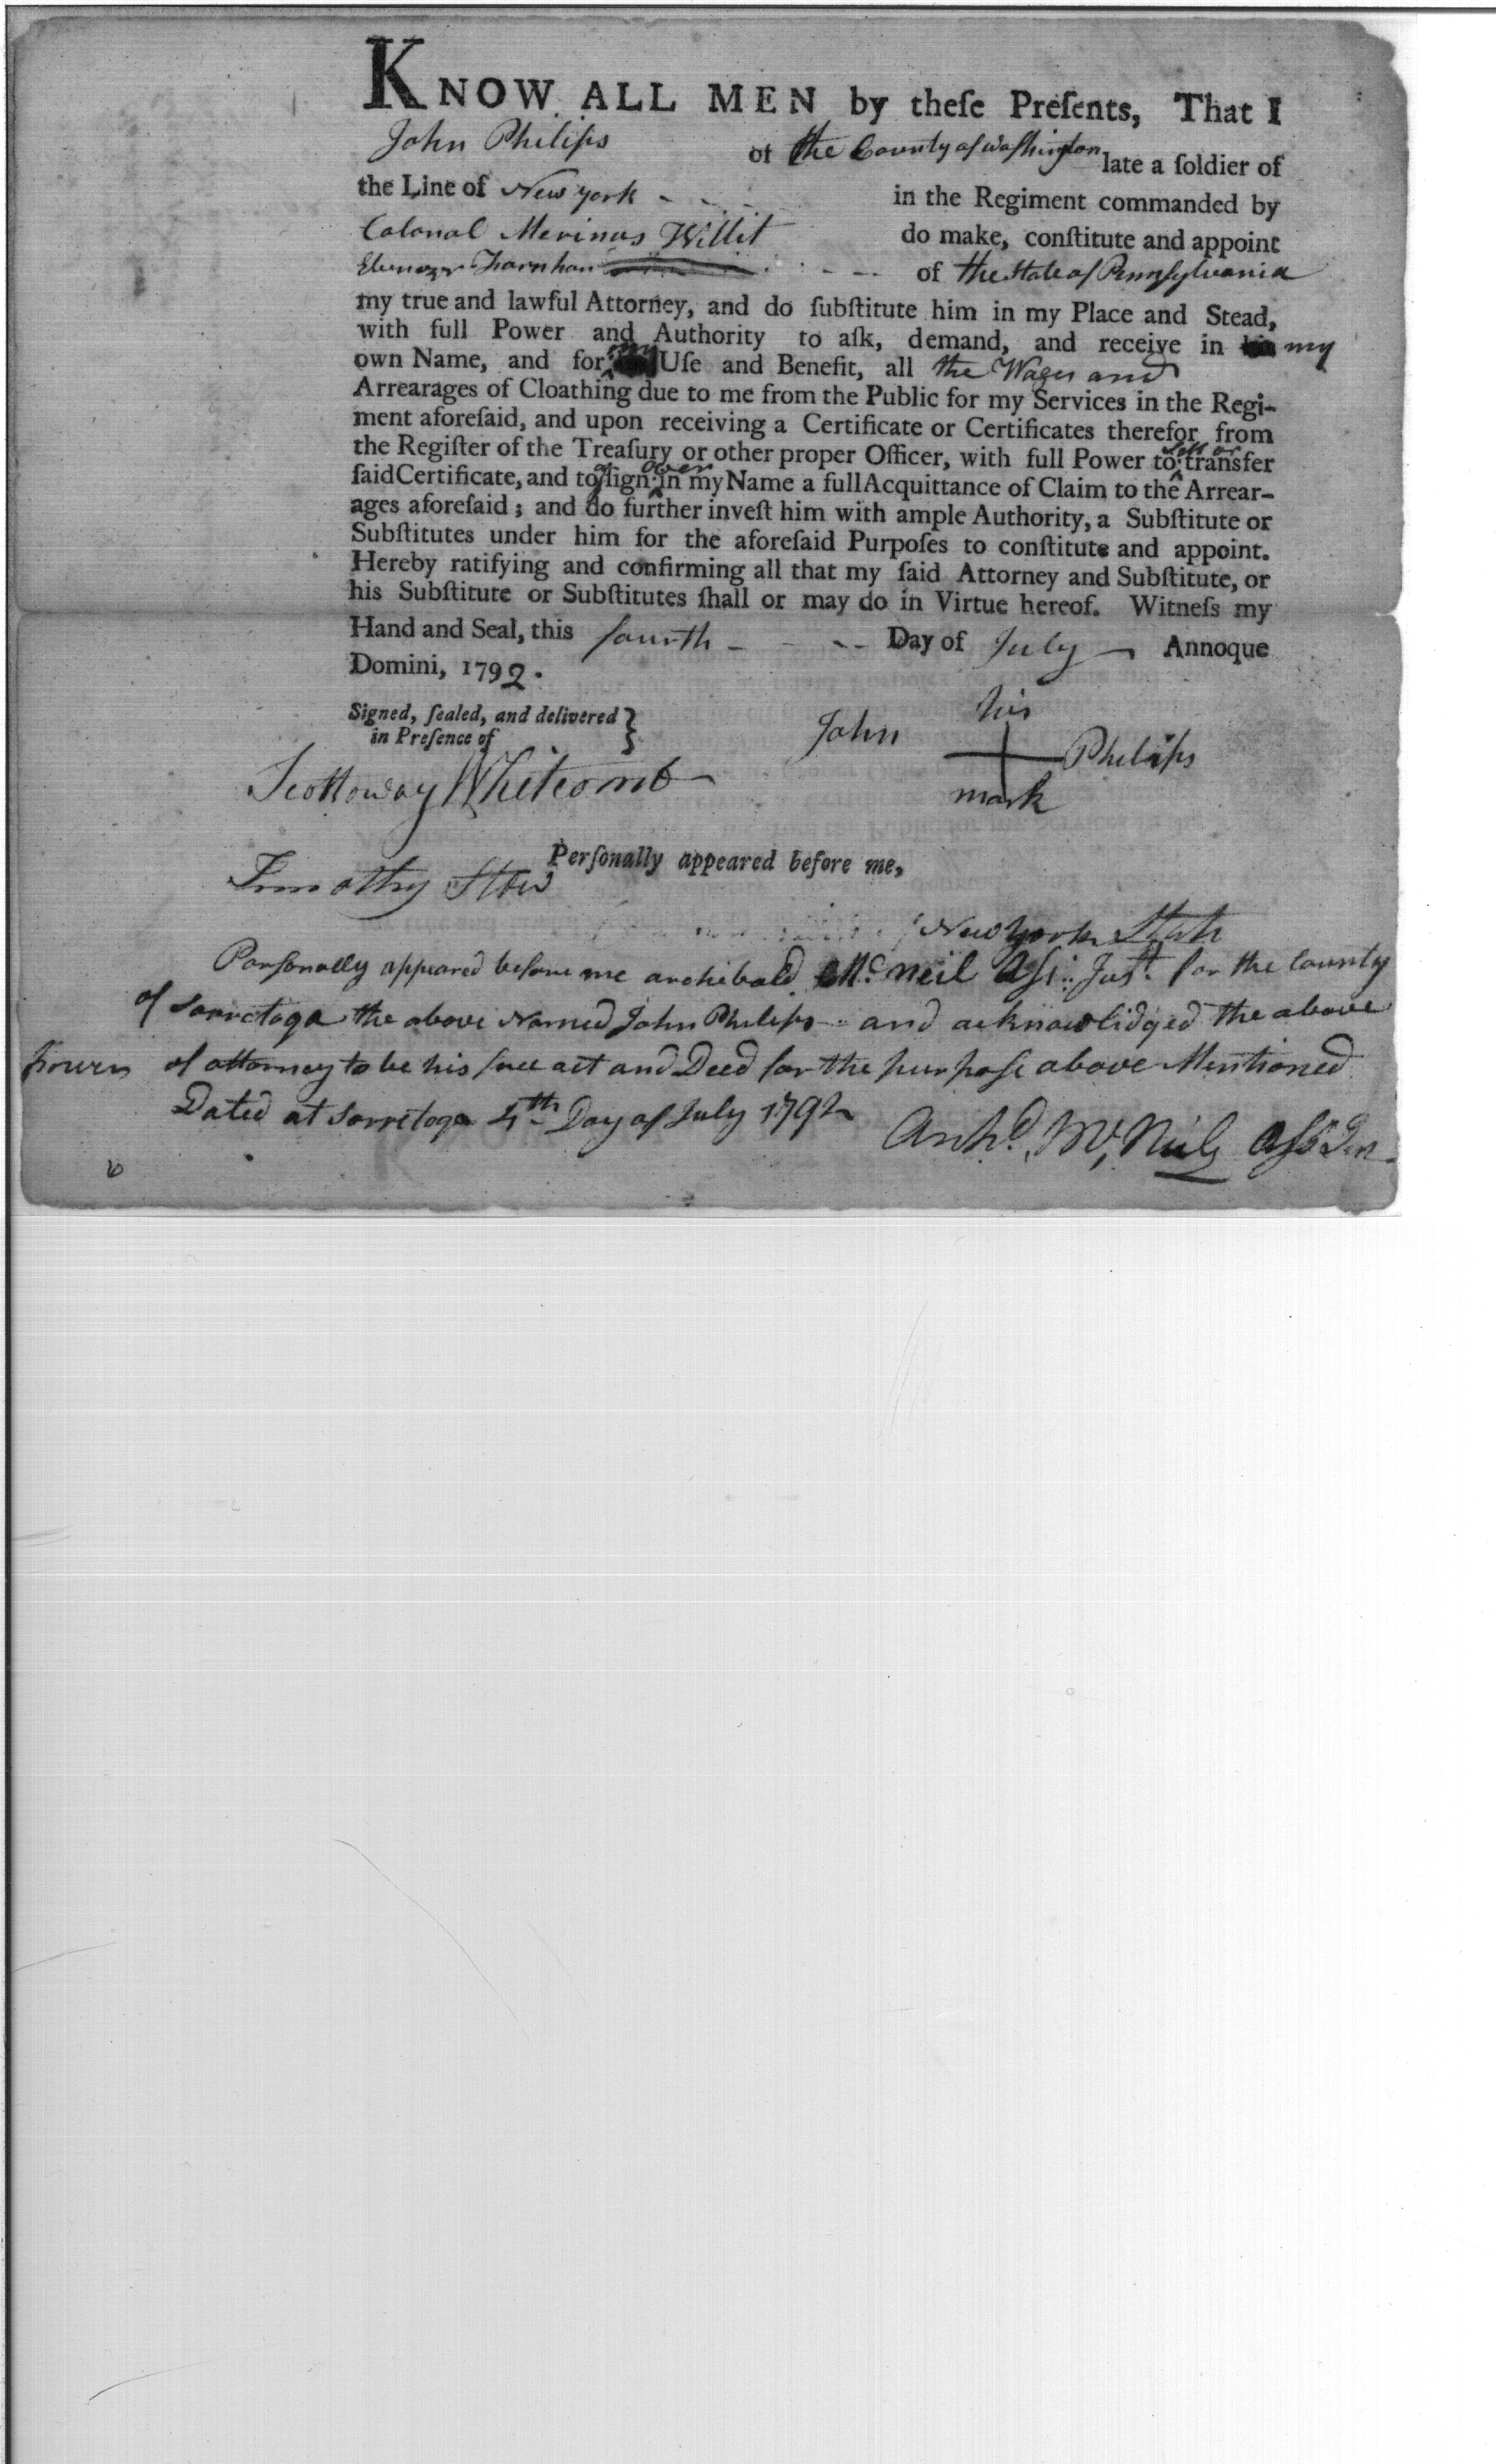 KNOW ALL MEN by theſe Preſents, That I
John Philips of the County of Waſhington late a ſoldier of
the Line of New york - - - in the Regiment commanded by
Colonal Merinus Willit do make, conſtitute and appoint
Ebenezr Farnham - - - of the State of Pennſylvania
my true and lawful Attorney, and do ſubſtitute him in my Place and Stead,
with full Power and Authority to aſk, demand, and receive in my
own Name, and for my Uſe and Benefit, all the Wages and
Arrearages of Cloathing due to me from the Public for my Services in the Regi-
ment aforeſaid, and upon receiving a Certificate or Certificates therefor from
the Regiſter of the Treaſury or other proper Officer, with full Power to sell or tranſfer
ſaid Certificate, and to aſſign over in my Name a full Acquittance of Claim to the Arrear-
ages aforeſaid; and do further inveſt him with ample Authority, a Subſtitute or
Subſtitutes under him for the aforeſaid Purpoſes to conſtitute and appoint.
Hereby ratifying and confirming all that my ſaid Attorney and Subſtitute, or
his Subſtitute or Subſtitutes ſhall or may do in Virtue hereof. Witneſs my
Hand and Seal, this fourth - - - Day of July - Annoque
Domini, 1792.
Signed, ſealed, and delivered }
in Preſence of
his
John + Philips
mark
Scottoway Whitcomb
Perſonally appeared before me,
Timothy Stow
New york State
Parſonally appeared before me archibald Mc.neil Aſi: Just. for the County
of Sarratoga the above Named John Philips - and acknowlidged the above
power of attorney to be his free act and Deed for the purpoſe above Mentioned
Dated at Sarretoga 4th Day of July 1792
Archd. McNeil Aſs